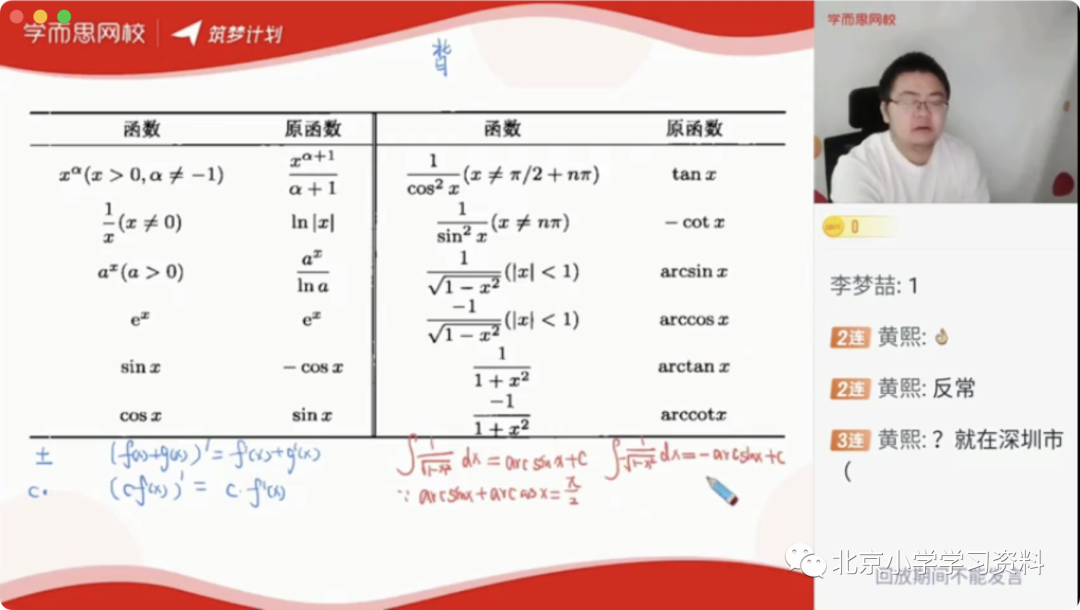 学而思网校 筑梦计划
背
函数 原函数 函数 原函数
x^α(x > 0, α ≠ −1) x^(α+1)/(α+1) 1/cos² x (x ≠ π/2 + nπ) tan x
1/x (x ≠ 0) ln |x| 1/sin² x (x ≠ nπ) − cot x
a^x(a > 0) a^x/ln a 1/√(1 − x²) (|x| < 1) arcsin x
e^x e^x −1/√(1 − x²) (|x| < 1) arccos x
sin x − cos x 1/(1 + x²) arctan x
cos x sin x −1/(1 + x²) arccotx
± (f(x)+g(x))' = f'(x)+g'(x)
c· (cf(x))' = c·f'(x)
∫ 1/√(1−x²) dx = arcsinx+C ∫ −1/√(1−x²) dx = −arcsinx+C
∵ arcsinx + arccosx = π/2
学而思网校
0
李梦喆: 1
2连 黄熙: 👌
2连 黄熙: 反常
3连 黄熙: ? 就在深圳市
(
北京小学学习资料
回放期间不能发言